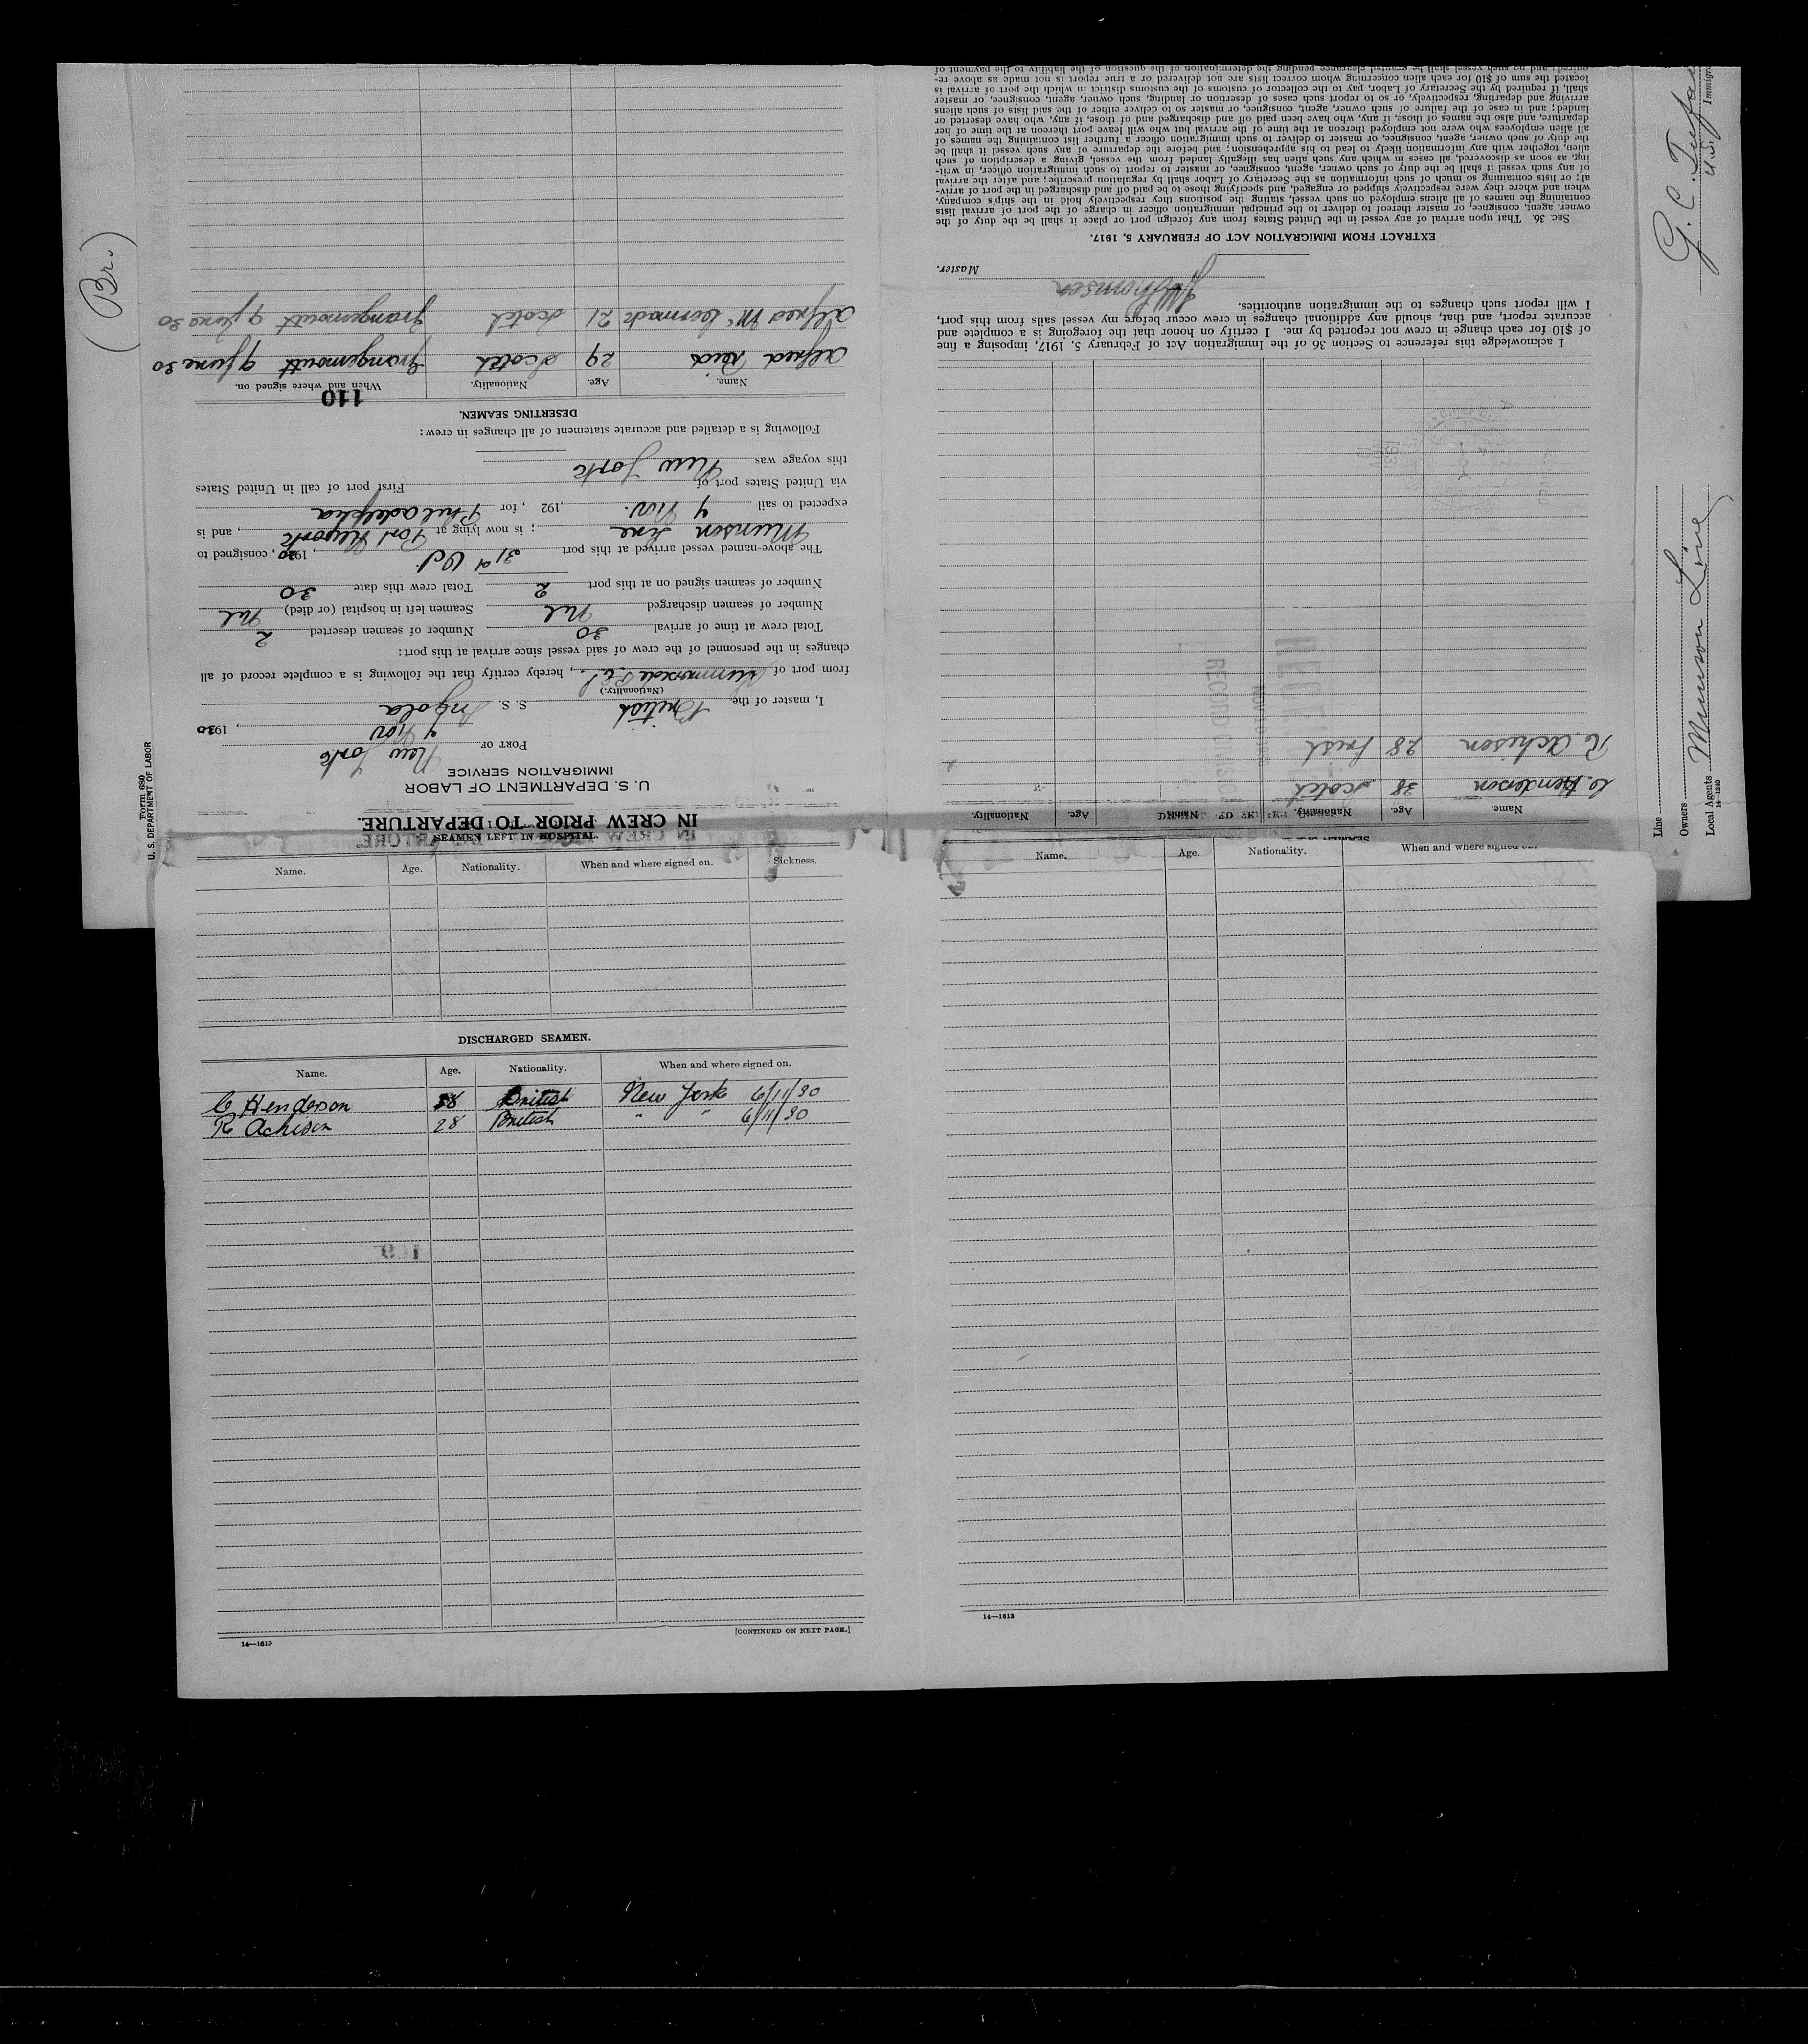 IN CREW PRIOR TO DEPARTURE.
U. S. DEPARTMENT OF LABOR
IMMIGRATION SERVICE
PORT OF New York
4 Nov , 1930
I, master of the British S. S. Ingola
(Nationality.)
from port of , hereby certify that the following is a complete record of all
changes in the personnel of the crew of said vessel since arrival at this port:
Total crew at time of arrival 30 Number of seamen deserted 2
Number of seamen discharged Nil Seamen left in hospital (or died) Nil
Number of seamen signed on at this port 2 Total crew this date 30
The above-named vessel arrived at this port 31st Oct. , 1930, consigned to
Munson Line ; is now lying at Port Newark , and is
expected to sail 4 Nov. , 192 , for Philadelphia
via United States port of First port of call in United States
this voyage was New York
Following is a detailed and accurate statement of all changes in crew:
DESERTING SEAMEN.
110
Name. Age. Nationality. When and where signed on.
Alfred Reid 29 Scotch Grangemouth 9 June 30
Alfred Mc 21 Scotch Grangemouth 9 June 30
(Br.)
Form 689
U. S. DEPARTMENT OF LABOR
Name. Age. Nationality. Name. Age. Nationality.
C. Henderson 38 Scotch
R. Acheson 28 Irish
RECORD DIVISION
I acknowledge this reference to Section 36 of the Immigration Act of February 5, 1917, imposing a fine
of $10 for each change in crew not reported by me. I certify on honor that the foregoing is a complete and
accurate report, and that, should any additional changes in crew occur before my vessel sails from this port,
I will report such changes to the immigration authorities.
Thomson
Master.
EXTRACT FROM IMMIGRATION ACT OF FEBRUARY 5, 1917.
SEC. 36. That upon arrival of any vessel in the United States from any foreign port or place it shall be the duty of the
owner, agent, consignee, or master thereof to deliver to the principal immigration officer in charge of the port of arrival lists
containing the names of all aliens employed on such vessel, stating the positions they respectively hold in the ship's company,
when and where they were respectively shipped or engaged, and specifying those to be paid off and discharged in the port of arriv-
al; or lists containing so much of such information as the Secretary of Labor shall by regulation prescribe; and after the arrival
of any such vessel it shall be the duty of such owner, agent, consignee, or master to report to such immigration officer, in writ-
ing, as soon as discovered, all cases in which any such alien has illegally landed from the vessel, giving a description of such
alien, together with any information likely to lead to his apprehension; and before the departure of any such vessel it shall be
the duty of such owner, agent, consignee, or master to deliver to such immigration officer a further list containing the names of
all alien employees who were not employed thereon at the time of the arrival but who will leave port thereon at the time of her
departure, and also the names of those, if any, who have been paid off and discharged and of those, if any, who have deserted or
landed; and in case of the failure of such owner, agent, consignee, or master so to deliver either of the said lists of such aliens
arriving and departing, respectively, or so to report such cases of desertion or landing, such owner, agent, consignee, or master
shall, if required by the Secretary of Labor, pay to the collector of customs of the customs district in which the port of arrival is
located the sum of $10 for each alien concerning whom correct lists are not delivered or a true report is not made as above re-
quired; and no such vessel shall be granted clearance pending the determination of the question of the liability to the payment of
Line
Owners Munson Line
Local Agents
14—1240
G. C.
U.S. Immigra
SEAMEN LEFT IN HOSPITAL.
Name. Age. Nationality. When and where signed on. Sickness.
DISCHARGED SEAMEN.
Name. Age. Nationality. When and where signed on.
C Henderson 38 British New York 6/11/30
R Acheson 28 British " " 6/11/30
14—1613
[CONTINUED ON NEXT PAGE.]
Name. Age. Nationality. When and where signed on.
14—1613